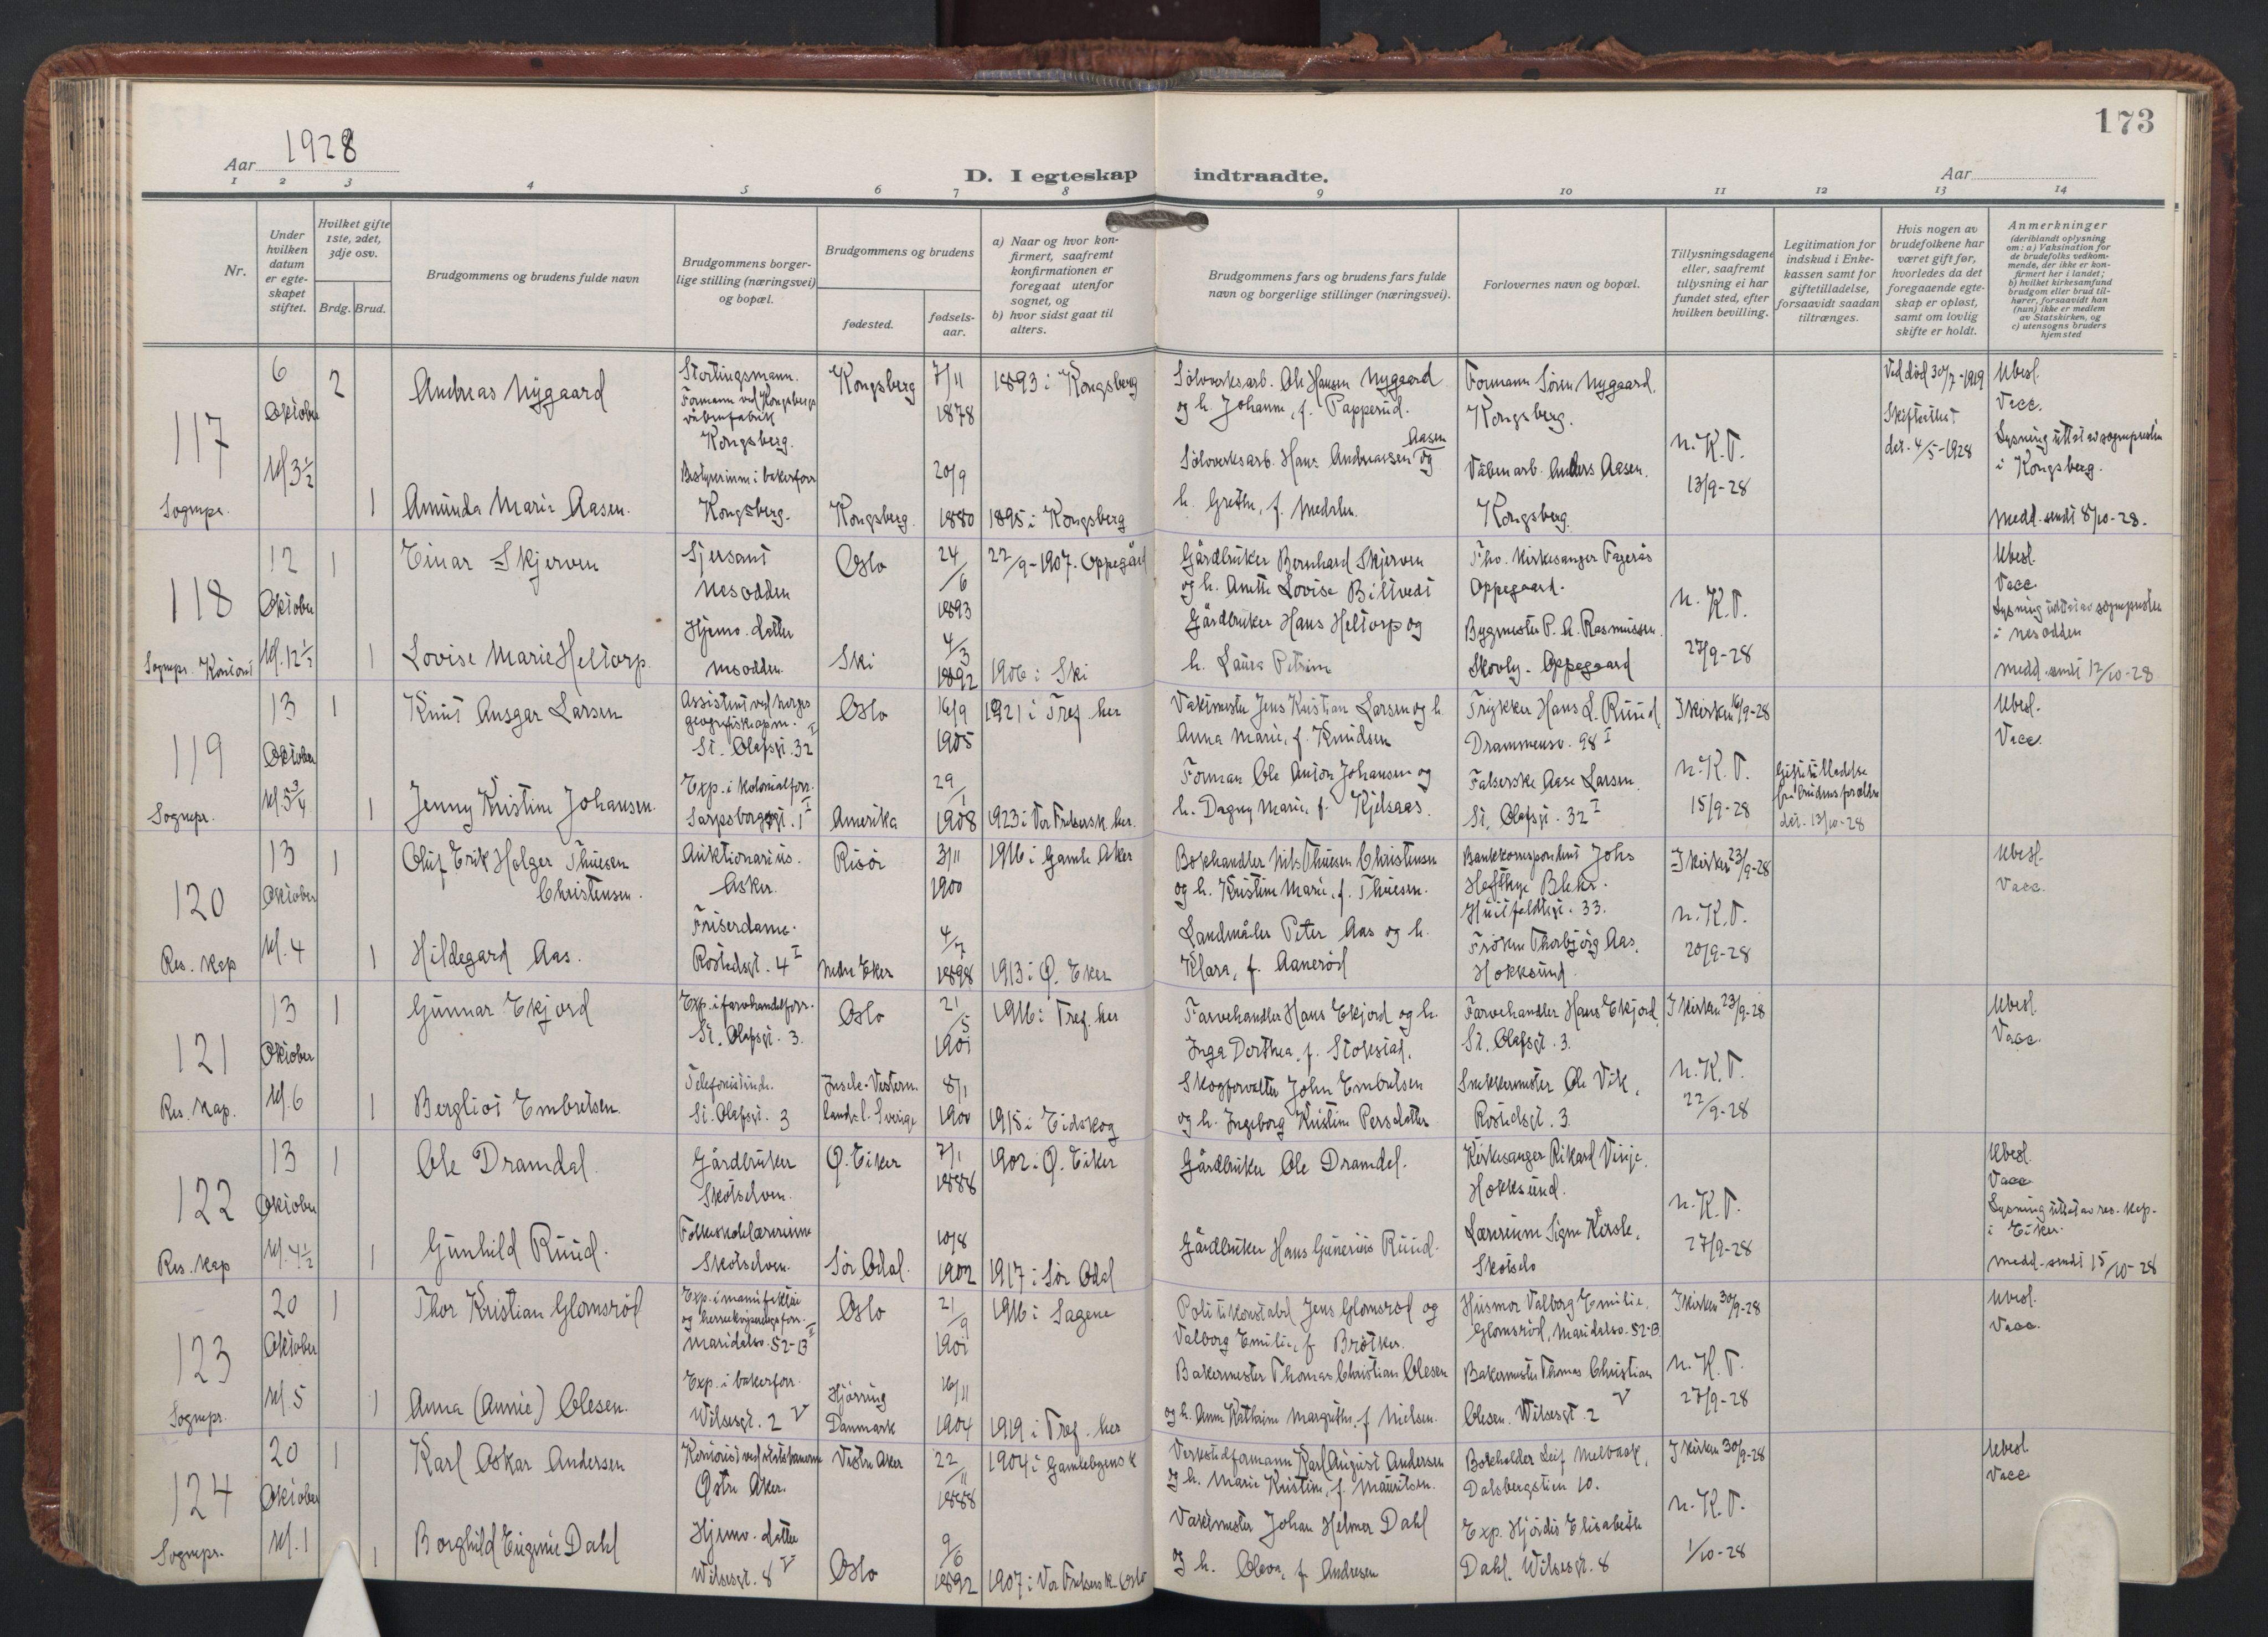 173
Aar 1928
D. I egteskap indtraadte.
Aar
1 2 3 4 5 6 7 8 9 10 11 12 13 14
Nr.
Under hvilken datum er egteskapet stiftet.
Hvilket gifte 1ste, 2det, 3dje osv.
Brdg. Brud.
Brudgommens og brudens fulde navn
Brudgommens borgerlige stilling (næringsvei) og bopæl.
Brudgommens og brudens
fødested.
fødselsaar.
a) Naar og hvor konfirmert, saafremt konfirmationen er foregaat utenfor sognet, og
b) hvor sidst gaat til alters.
Brudgommens fars og brudens fars fulde navn og borgerlige stillinger (næringsvei).
Forlovernes navn og bopæl.
Tillysningsdagene eller, saafremt tillysning ei har fundet sted, efter hvilken bevilling.
Legitimation for indskud i Enkekassen samt for giftetilladelse, forsaavidt saadan tiltrænges.
Hvis nogen av brudefolkene har været gift før, hvorledes da det foregaaende egteskap er opløst, samt om lovlig skifte er holdt.
Anmerkninger (deriblandt oplysning om: a) Vaksination for de brudefolks vedkommende, der ikke er konfirmert her i landet; b) hvilket kirkesamfund brudgom eller brud tilhører, forsaavidt han (hun) ikke er medlem av Statskirken, og c) utensogns bruders hjemsted
117 Sognepr.
6 Oktober kl 3½
2 Andreas Nygaard
Stortingsmann. Formann ved Kongsbergs våbenfabrik Kongsberg.
Kongsberg 7/11 1878
1893 i Kongsberg
Sölvverksarb. Ole Hansen Nygaard og h. Johanne, f. Papperud.
Formann Sören Nygaard. Kongsberg.
N.K.T. 13/9-28
Ved död 30/7-1919 Skifteattest det. 4/5-1928
Ubesl. Vacc. Lysning uttat av sognepresten i Kongsberg. Medd. sendt 8/10-28.
1 Amunda Marie Aasen.
Bestyrerinne i bakerforr Kongsberg.
Kongsberg. 20/9 1880
1895 i Kongsberg
Sölvverksarb. Hans Andreassen Aasen og h. Grethe, f. Medalen.
Våbenarb. Anders Aasen. Kongsberg.
118 Sognepr. Kontor
12 Oktober kl. 12½
1 Einar Skjerven
Sjersant Nesodden
Oslo 24/6 1893
22/9-1907. Oppegård
Gårdbruker Bernhard Skjerven og h. Anette Lovise Biltvedt
Fhv. Kirkesanger Fagerås Oppegaard.
N.K.T. 27/9-28
Ubesl. Vacc. Lysning uttat av sognepresten i Nesodden Medd. sendt 12/10-28
1 Lovise Marie Heltorp.
Hjemv. datter Nesodden.
Ski 4/3 1892
1906 i Ski
Gårdbruker Hans Heltorp og h. Laura Petrine
Bygmester P. A. Rasmussen. Skovly - Oppegaard
119 Sognepr.
13 Oktober kl. 5¾
1 Knut Ansgar Larsen
Assistent ved Norges geografiske opm. St. Olafsgt. 32 I
Oslo 16/9 1905
1921 i Tref. her
Vaktmester Jens Kristian Larsen og h. Anna Marie, f. Knudsen
Trykker Hans L. Ruud, Drammensv. 98 I
I kirken 16/9-28
N.K.T. 15/9-28
Giftetilladelse fra brudens forældre det. 13/10-28
Ubesl. Vacc.
1 Jenny Kristine Johansen.
Exp. i kolonialforr. Sarpsborggt. 1 I
Amerika 29/1 1908
1923 i Vor Frelsers k. her.
Forman Ole Anton Johansen og h. Dagny Marie, f. Kjelsaas.
Falserske Aase Larsen. St. Olafsgt. 32 I
120 Res. Kap
13 Oktober kl. 4
1 Oluf Erik Holger Thuesen Christensen.
Auktionarius. Asker.
Risör 3/11 1900
1916 i Gamle Aker
Bokhandler Nils Thuesen Christensen og h. Kristine Marie, f. Thuesen.
Bankkorrespondent Johs Heftye Blehr. Huitfeldtsgt. 33.
I kirken 23/9-28
N.K.T. 20/9-28
Ubesl. Vacc.
1 Hildegard Aas.
Friserdame. Rostedsgt. 4 I
Nedre Eker 4/7 1898
1913 i Ø. Eker
Landmåler Peter Aas og h. Klara, f. Aanerød
Fröken Thorbjörg Aas. Hokksund.
121 Res. Kap.
13 Oktober kl. 6
1 Gunnar Ekjord
Exp. i farvehandelforr. St. Olafsgt. 3.
Oslo 21/5 1901
1916 i Tref. her
Farvehandler Hans Ekjord og h. Inga Dorthea, f. Stokstad.
Farvehandler Hans Ekjord, St. Olafsgt. 3.
I kirken 23/9-28
N.K.T. 22/9-28
Ubesl. Vacc.
1 Bergliot Embretsen.
Telefonistinde. St. Olafsgt. 3
Sverige 8/1 1900
1915 i Eidskog
Skogforvalter John Embretsen og h. Ingeborg Kristine Persdatter
Snekkermester Ole Vik, Rostedsgt. 3.
122 Res. Kap
13 Oktober kl. 4½
1 Ole Dramdal.
Gårdbruker Skotselven.
Ø. Eiker 7/1 1888
1902 i Ø. Eiker
Gårdbruker Ole Dramdal.
Kirkesanger Rikard Vinje. Hokksund.
N.K.T. 27/9-28
Ubesl. Vacc Lysning uttat av res. kap. i Eiker. Medd. sendt 15/10-28
1 Gunhild Ruud.
Folkeskolelærerinne Skotselven.
Sör Odal. 10/8 1902
1917 i Sör Odal
Gårdbruker Hans Gunerius Ruud.
Lærerinne Signe Skotselv
123 Sognepr.
20 Oktober kl. 5
1 Thor Kristian Glomsröd
Exp. i manufaktur og herreekviperingsforr. Maridalsv. 52-B II
Oslo 21/9 1901
1916 i Sagene
Politikonstabel Jens Glomsröd og Valborg Emilie, f. Bröther.
Husmor Valborg Emilie Glomsröd, Maridalsv. 52-B
I kirken 30/9-28
N.K.T. 27/9-28
Ubesl. Vacc.
1 Anna (Annie) Olesen.
Exp. i bakerforr. Wilsesgt. 2 V
Hjörring Danmark 16/11 1904
1919 i Tref. her
Bakermester Thomas Christian Olesen og h. Anne Kathrine Margrethe, f. Nielsen.
Bakermester Thomas Christian Olesen. Wilsesgt. 2 V
124 Sognepr.
20 Oktober kl. 1
1 Karl Oskar Andersen
Kontorist ved statsbanerne Østre Aker.
Vestre Aker 22/11 1888
1904 i Gamlebyens k
Verkstedformann Karl August Andersen og h. Marie Kristine, f. Mauritsen.
Bokholder Leif Melvaak, Dalsbergstien 10.
I kirken 30/9-28
N.K.T. 1/10-28
Ubesl. Vacc
1 Borghild Eugenie Dahl
Hjemv. datter Wilsesgt. 8 V
Oslo 9/6 1892
1907 i Vor Frelsers k. Oslo
Vaktmester Johan Helmer Dahl og h. Oleva, f. Andresen
Exp. Hjördis Elisabeth Dahl. Wilsesgt. 8